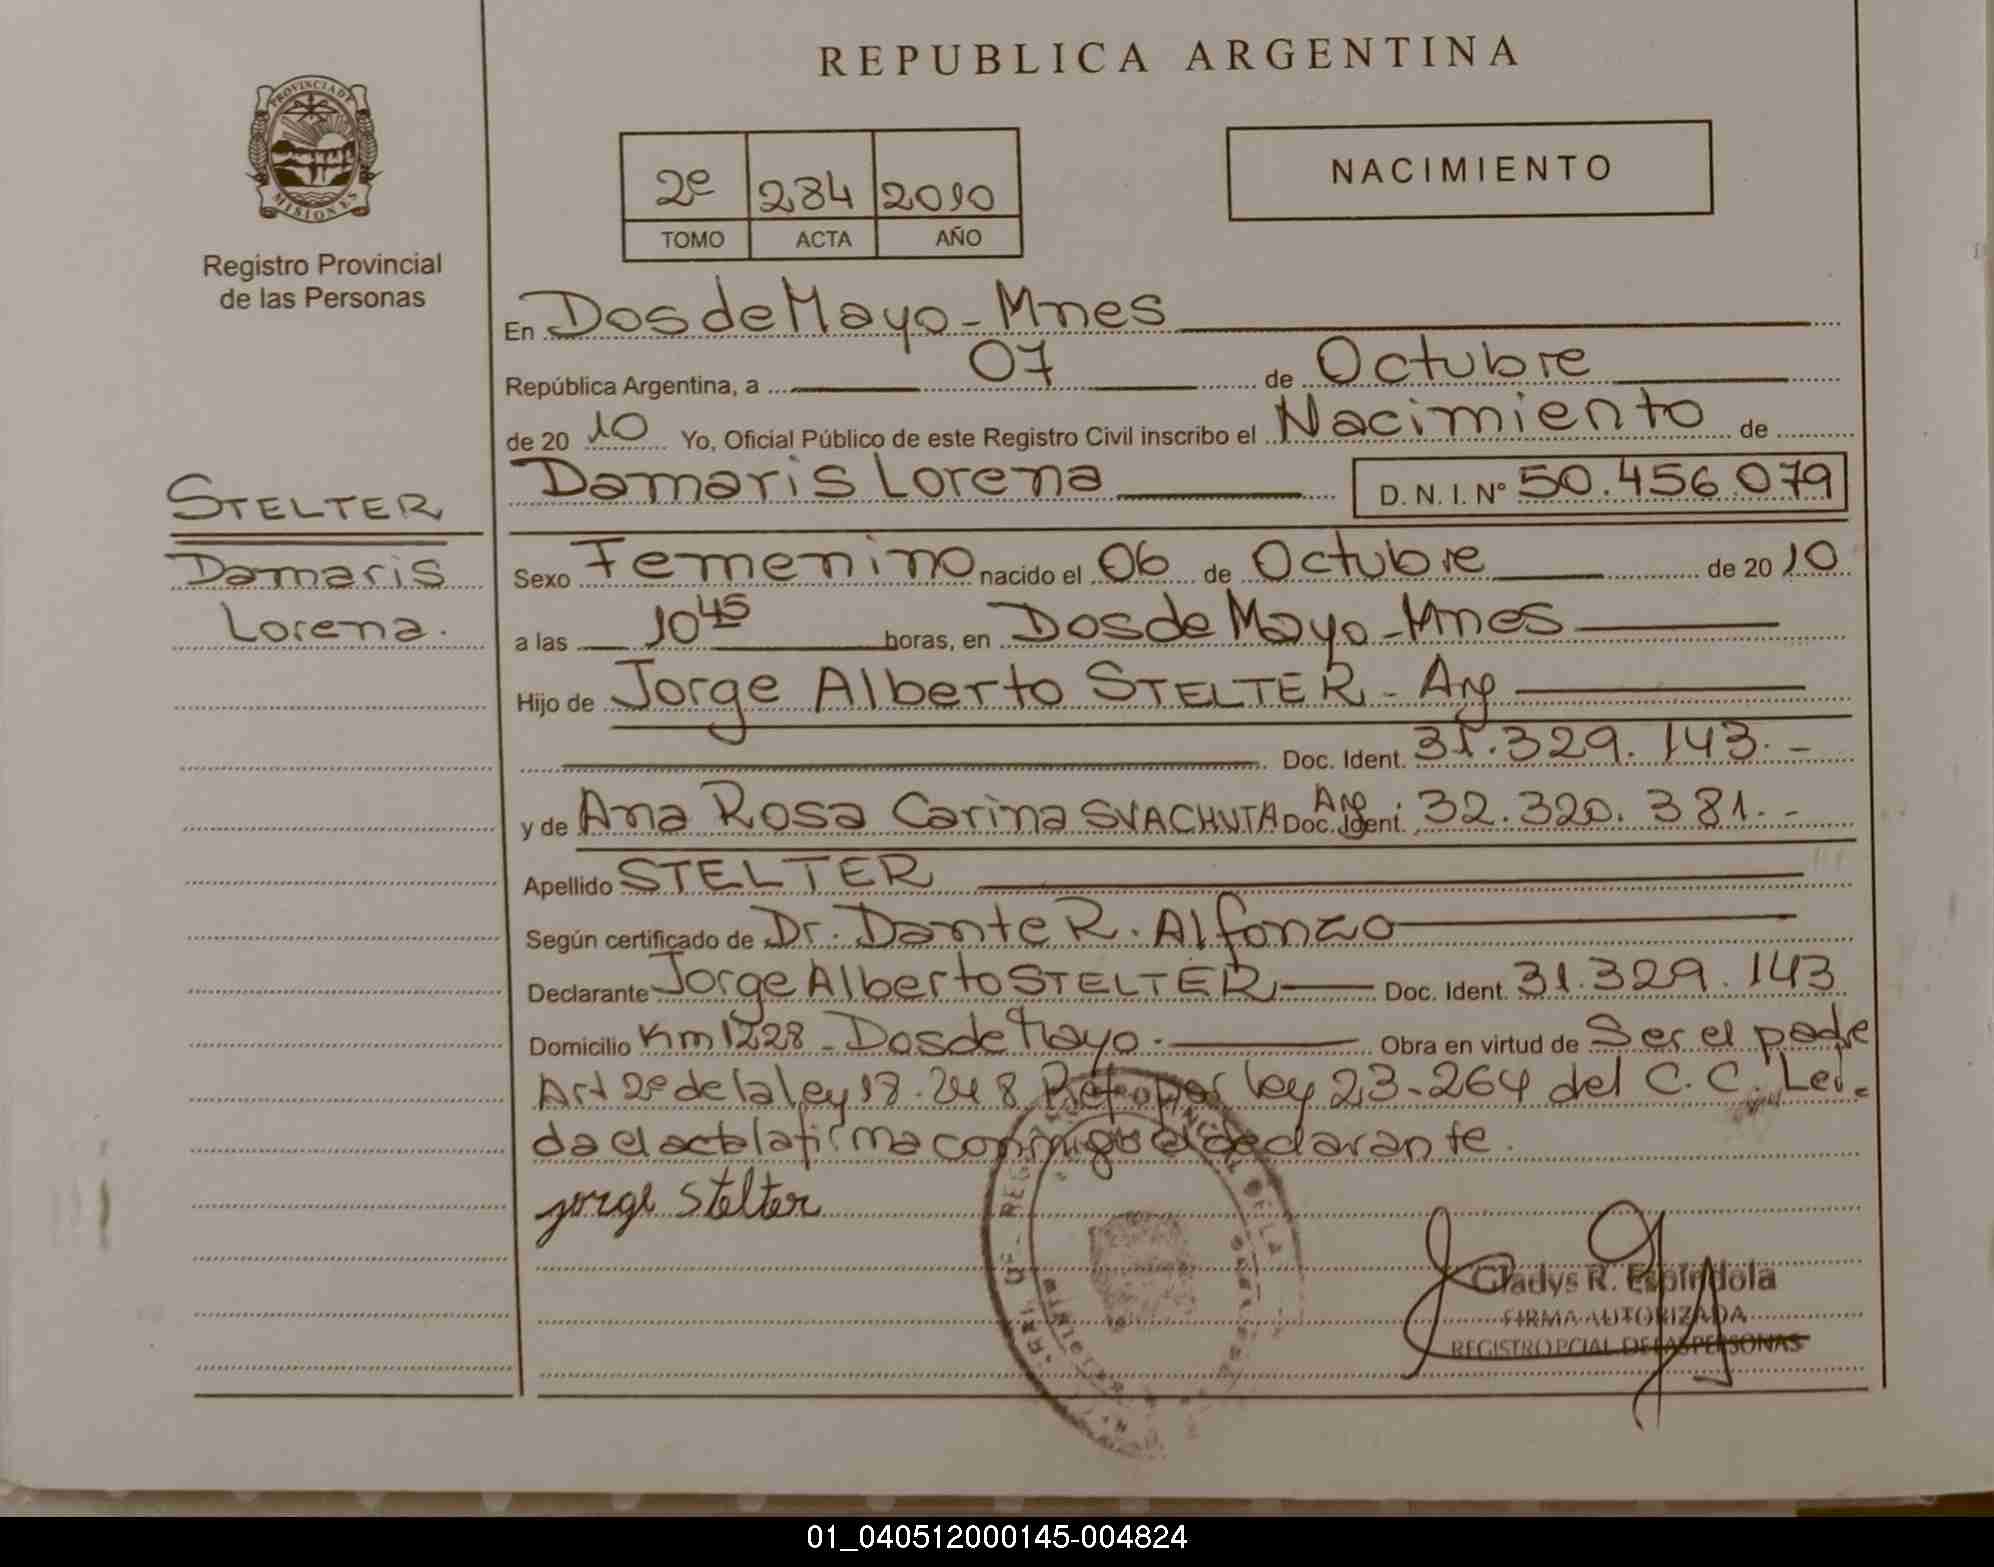 REPUBLICA ARGENTINA
PROVINCIA DE
MISIONES
Registro Provincial
de las Personas
2º 284 2010
TOMO ACTA AÑO
NACIMIENTO
En Dos de Mayo - Mnes
República Argentina, a 07 de Octubre
de 20 10 Yo, Oficial Público de este Registro Civil inscribo el Nacimiento de
Damaris Lorena D. N. I. Nº 50.456.079
STELTER
Damaris
Lorena.
Sexo Femenino nacido el 06 de Octubre de 20 10
a las 10 45 horas, en Dos de Mayo - Mnes
Hijo de Jorge Alberto STELTER - Arg
Doc. Ident. 31.329.143.-
y de Ana Rosa Carina SVACHUTA Arg Doc. Ident. 32.320.381.-
Apellido STELTER
Según certificado de Dr. Dante R. Alfonzo
Declarante Jorge Alberto STELTER Doc. Ident. 31.329.143
Domicilio Km 1228 - Dos de Mayo. Obra en virtud de Ser el padre
Art 2º de la ley 18.248 por ley 23-264 del C.C. Leí
da el acta la firma conmigo el declarante.
jorge stelter
Gladys R. Espindola
FIRMA AUTORIZADA
REGISTRO PCIAL. DE LAS PERSONAS
01_040512000145-004824